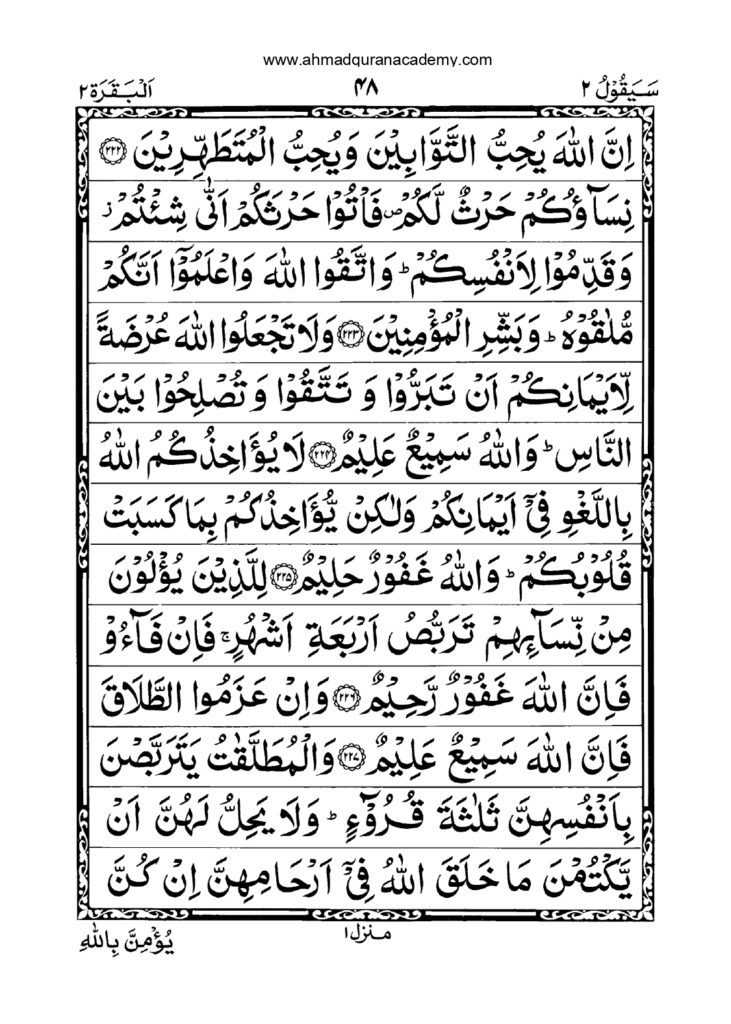 www.ahmadquranacademy.com
سَيَقُوْلُ ٢ ۴۸ اَلْبَقَرَة ٢
اِنَّ اللّٰهَ يُحِبُّ التَّوَّابِيْنَ وَيُحِبُّ الْمُتَطَهِّرِيْنَ ﴿۲۲۲﴾
نِسَآؤُكُمْ حَرْثٌ لَّكُمْ ۪ فَاْتُوْا حَرْثَكُمْ اَنّٰى شِئْتُمْ ز
وَقَدِّمُوْا لِاَنْفُسِكُمْ ؕ وَاتَّقُوا اللّٰهَ وَاعْلَمُوْۤا اَنَّكُمْ
مُّلٰقُوْهُ ؕ وَبَشِّرِ الْمُؤْمِنِيْنَ ﴿۲۲۳﴾ وَلَا تَجْعَلُوا اللّٰهَ عُرْضَةً
لِّاَيْمَانِكُمْ اَنْ تَبَرُّوْا وَ تَتَّقُوْا وَ تُصْلِحُوْا بَيْنَ
النَّاسِ ؕ وَاللّٰهُ سَمِيْعٌ عَلِيْمٌ ﴿۲۲۴﴾ لَا يُؤَاخِذُكُمُ اللّٰهُ
بِاللَّغْوِ فِىْۤ اَيْمَانِكُمْ وَلٰكِنْ يُّؤَاخِذُكُمْ بِمَا كَسَبَتْ
قُلُوْبُكُمْ ؕ وَاللّٰهُ غَفُوْرٌ حَلِيْمٌ ﴿۲۲۵﴾ لِلَّذِيْنَ يُؤْلُوْنَ
مِنْ نِّسَآئِهِمْ تَرَبُّصُ اَرْبَعَةِ اَشْهُرٍ ۚ فَاِنْ فَآءُوْ
فَاِنَّ اللّٰهَ غَفُوْرٌ رَّحِيْمٌ ﴿۲۲۶﴾ وَاِنْ عَزَمُوا الطَّلَاقَ
فَاِنَّ اللّٰهَ سَمِيْعٌ عَلِيْمٌ ﴿۲۲۷﴾ وَالْمُطَلَّقٰتُ يَتَرَبَّصْنَ
بِاَنْفُسِهِنَّ ثَلٰثَةَ قُرُوْٓءٍ ؕ وَلَا يَحِلُّ لَهُنَّ اَنْ
يَّكْتُمْنَ مَا خَلَقَ اللّٰهُ فِىْۤ اَرْحَامِهِنَّ اِنْ كُنَّ
منزل ۱
يُؤْمِنَّ بِاللّٰهِ